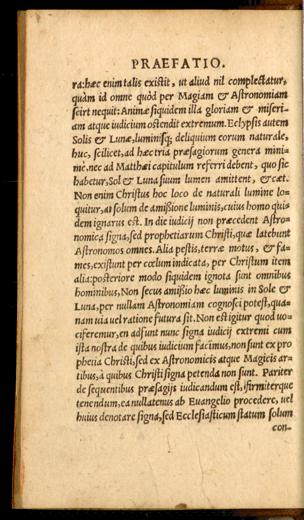 PRAEFATIO.
ra: hæc enim talis existit, ut aliud nil complectatur,
quàm id omne quòd per Magiam & Astronomiam
scirt nequit: Animæ siquidem illa gloriam & miseri-
am atque iudicium ostendit extremum. Eclypsis autem
Solis & Lunæ, luminisq; deliquium eorum naturale,
huc, scilicet, ad hæc tria præsagiorum genera minime
me, nec ad Matthæi capitulum referri debent, quo sic
habetur, Sol & Luna suum lumen amittent, &cæt.
Non enim Christus hoc loco de naturali lumine lo-
quitur, at solum de amißione luminis, cuius homo qui
dem ignarus est. In die iudicij non præcedent Astro-
nomica signa, sed prophetiarum Christi, quæ latebunt
Astronomos omnes. Alia pestis, terræ motus, & fa-
mes, existunt per cœlum indicata, per Christum item
alia: posteriore modo siquidem ignota sunt omnibus
hominibus, Non secus amißio hæc luminis in Sole &
Luna, per nullam Astronomiam cognosci potest, qua-
nam uia uel ratione futura sit. Non est igitur quod uo-
ciferemur, en adsunt nunc signa iudicij extremi cum
ista nostra de quibus iudicium facimus, non sunt ex pro
phetia Christi, sed ex Astronomicis atque Magicis ar-
tibus, à quibus Christi signa petenda non sunt. Pariter
de sequentibus præsagijs iudicandum est, firmiterque
tenendum, ea nullatenus ab Euangelio procedere, uel
huius denotare signa, sed Ecclesiasticum statum solum
con-